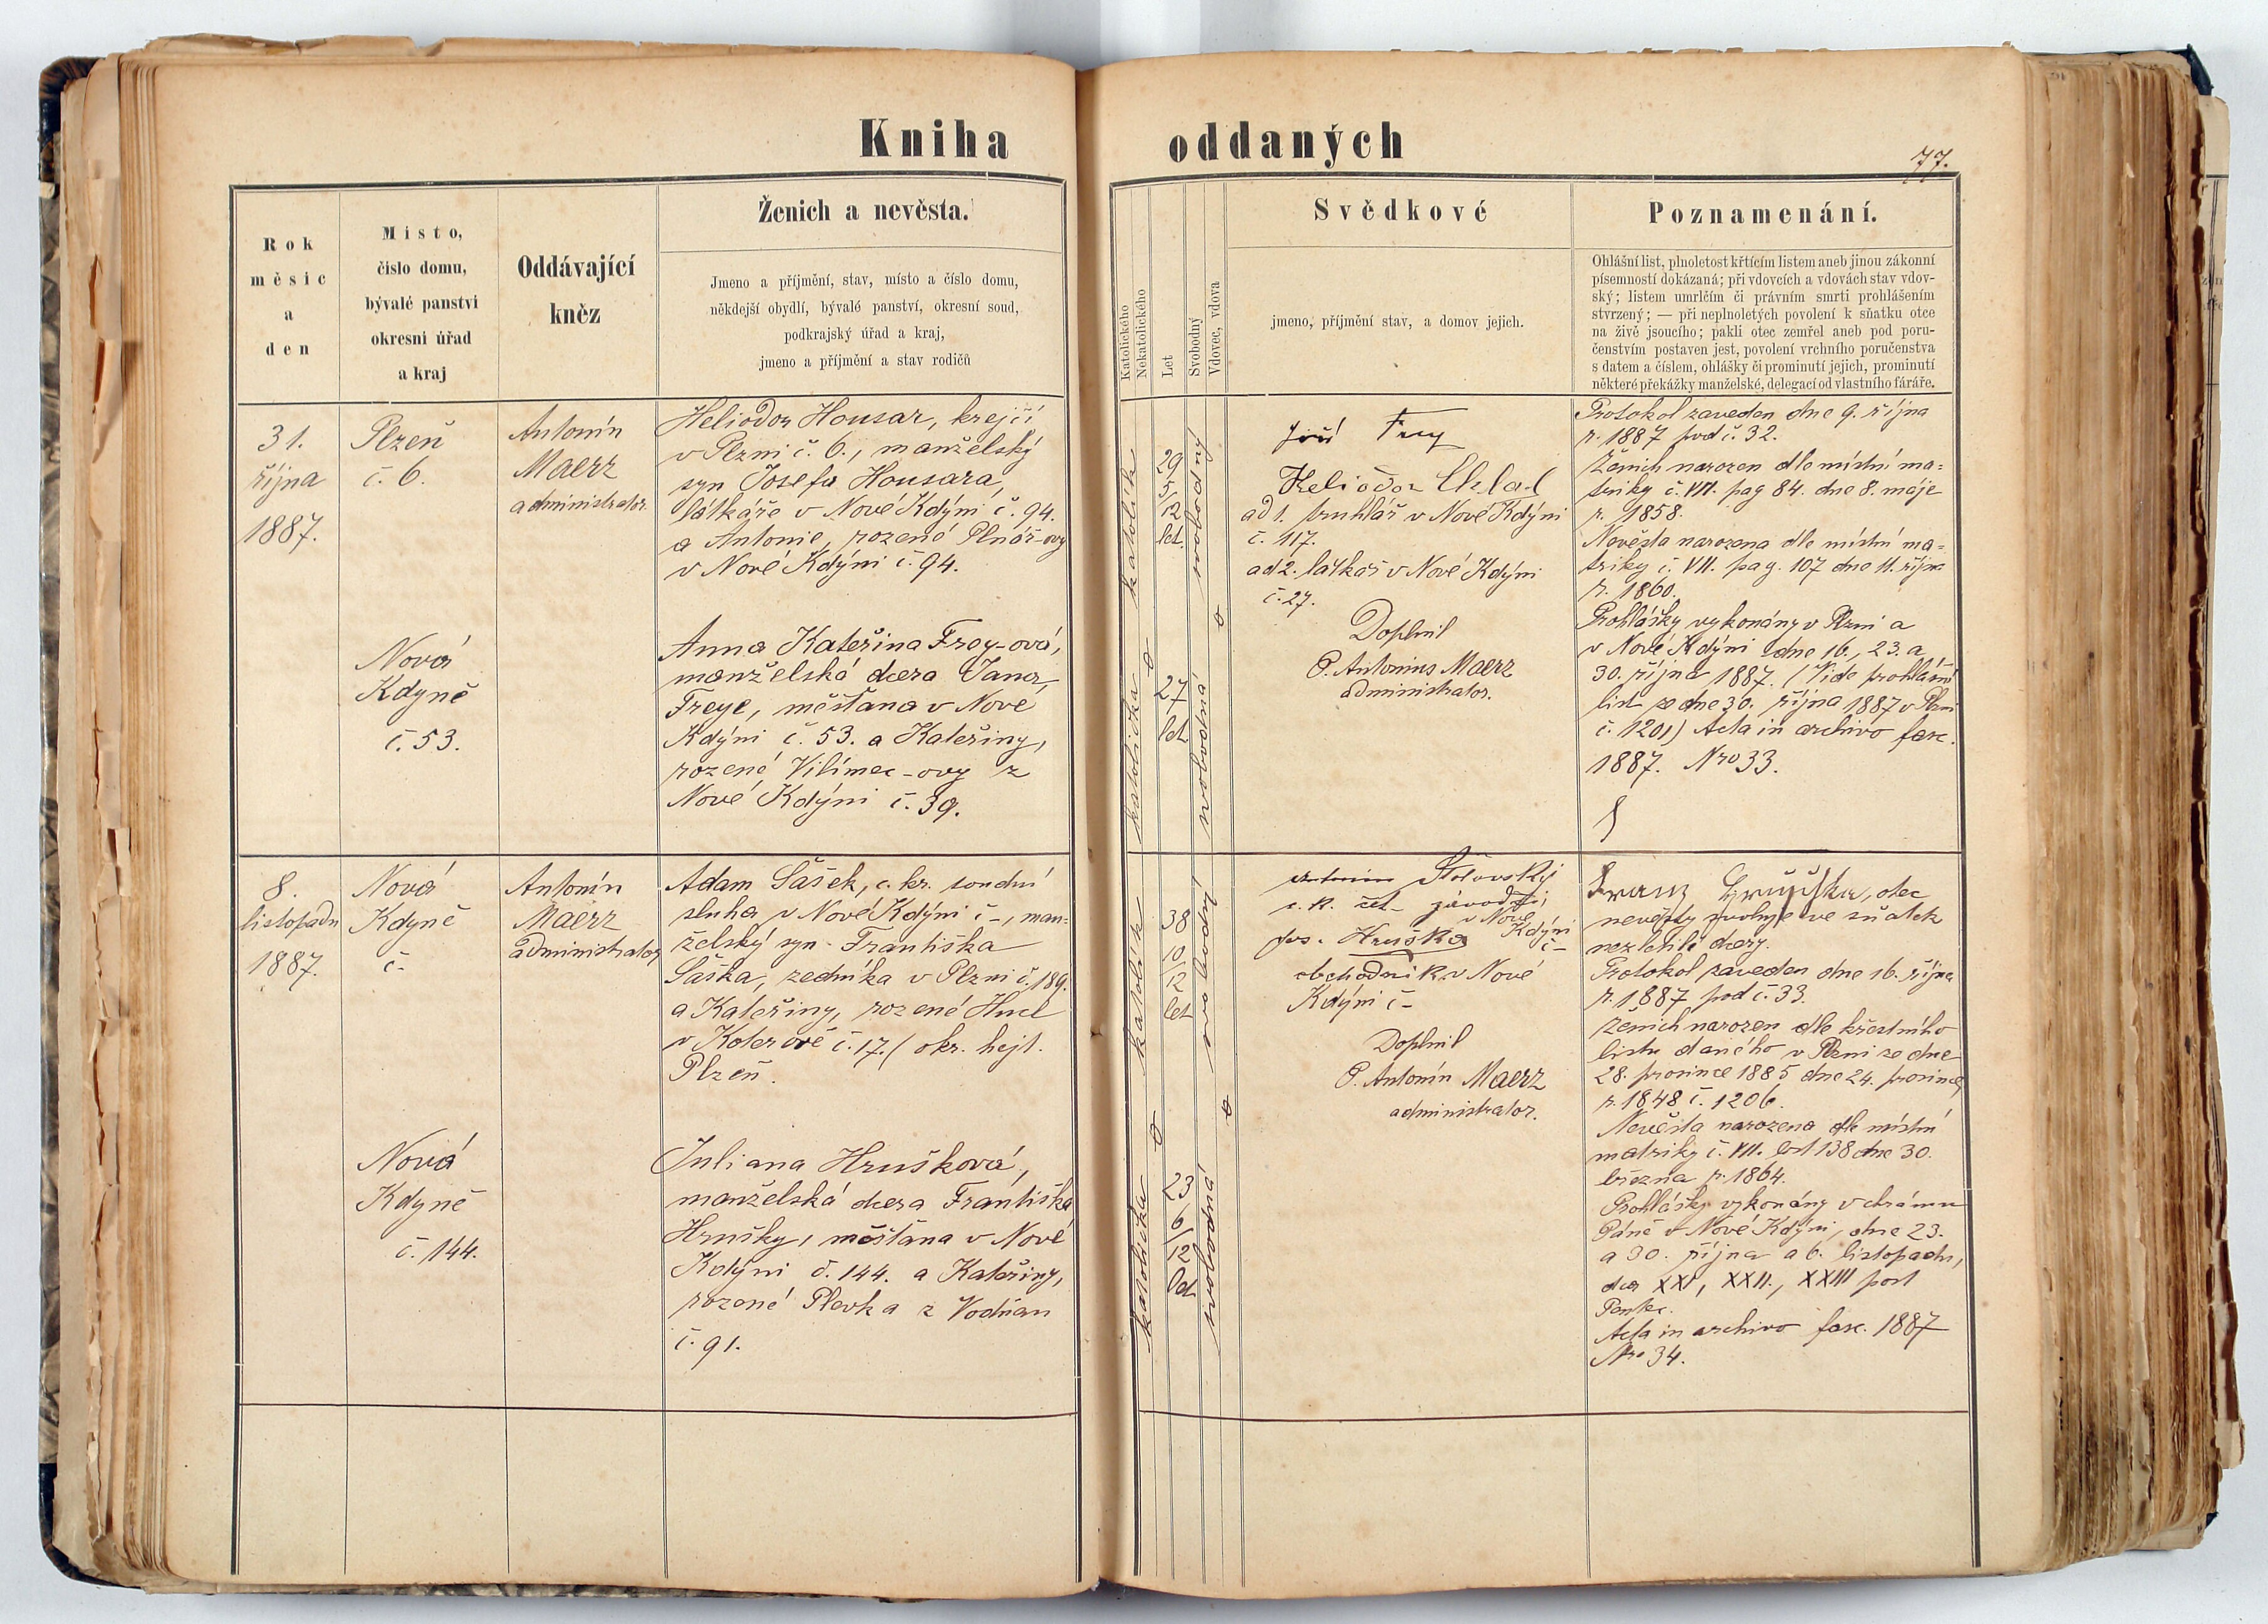 Kniha oddaných
77.
Rok
měsíc
a
den
Místo,
číslo domu,
bývalé panství
okresní úřad
a kraj
Oddávající
kněz
Ženich a nevěsta.
Jmeno a příjmění, stav, místo a číslo domu,
někdejší obydlí, bývalé panství, okresní soud,
podkrajský úřad a kraj,
jmeno a příjmění a stav rodičů
Katolického
Nekatolického
Let
Svobodný
Vdovec, vdova
Svědkové
jmeno, příjmění stav, a domov jejich.
Poznamenání.
Ohlášní list, plnoletost křtícím listem aneb jinou zákonní
písemností dokázaná; při vdovcích a vdovách stav vdov-
ský; listem umrlčím či právním smrti prohlášením
stvrzený; — při neplnoletých povolení k sňatku otce
na živě jsoucího; pakli otec zemřel aneb pod poru-
čenstvím postaven jest, povolení vrchního poručenstva
s datem a číslem, ohlášky či prominutí jejich, prominutí
některé překážky manželské, delegací od vlastního faráře.
31.
října
1887.
Plzeň
č. 6.
Antonín
Maerz
administrator.
Heliodor Housar, krejčí
v Plzni č. 6., manželský
syn Josefa Housara,
látkáře v Nové Kdýni č. 94.
a Antonie, rozené Plnář-ovy
v Nové Kdýni č. 94.
Nová
Kdyně
č. 53.
Anna Kateřina Frey-ová,
manželská dcera Jana
Freye, měšťana v Nové
Kdýni č. 53. a Kateřiny,
rozené Vilímec-ovy z
Nové Kdýni č. 39.
katolík
29
5/
12
let.
svobodný
o
katolička
o
27
let
svobodná
Jiří Frey
Heliodor Chlad
ad 1. truhlář v Nové Kdýni
č. 117.
ad 2. látkář v Nové Kdýni
č. 27.
Doplnil
P. Antonius Maerz
administrator.
Protokol zaveden dne 9. října
r. 1887 pod č. 32.
Ženich narozen dle místní ma=
triky č. VII. pag 84. dne 8. máje
r. 1858.
Nevěsta narozena dle místní ma=
triky č. VII. pag. 107 dne 11. října
r. 1860.
Prohlášky vykonány v Plzni a
v Nové Kdýni dne 16., 23. a
30. října 1887. (Vide prohlášní
list ze dne 30. října 1887 v Plzni
č. 1201) Acta in archivo fasc.
1887. Nro 33.
8.
listopadu
1887.
Nová
Kdyně
č.-
Antonín
Maerz
administrator
Adam Sášek, c. kr. soudní
sluha v Nové Kdýni č -, man-
želský syn Františka
Sáška, zedníka v Plzni č. 189.
a Kateřiny, rozené Hucl
v Koterově č. 17. ( okr. hejt.
Plzeň.
Nová
Kdyně
č. 144.
Juliana Hrušková,
manželská dcera Františka
Hrušky, měšťana v Nové
Kdýni č. 144. a Kateřiny,
rozené Plevka z Vodňan
č. 91.
katolík
38
10/
12
let
svobodný
o
katolička
o
23
6/
12
let
svobodná
c. k. čet. závodčí,
v Nové
Kdýni
č -
Jos. Hruška
obchodník v Nové
Kdýni č -
Doplnil
P. Antonín Maerz
administrator.
Franz Hruschka, otec
nevěsty svoluje ve sňatek
nezletilé dcery.
Protokol zaveden dne 16. října
r. 1887 pod č. 33.
Ženich narozen dle křestního
listu daného v Plzni ze dne
28. prosince 1885 dne 24. prosince
r. 1848 č. 1206.
Nevěsta narozena dle místní
matriky č. VII. list 138 dne 30.
března r. 1864.
Prohlášky vykonány v chrámu
Páně v Nové Kdýni, dne 23.
a 30. října a 6. listopadu,
dca XXI, XXII., XXIII post
Pentec.
Acta in archivo fasc. 1887
Nro 34.